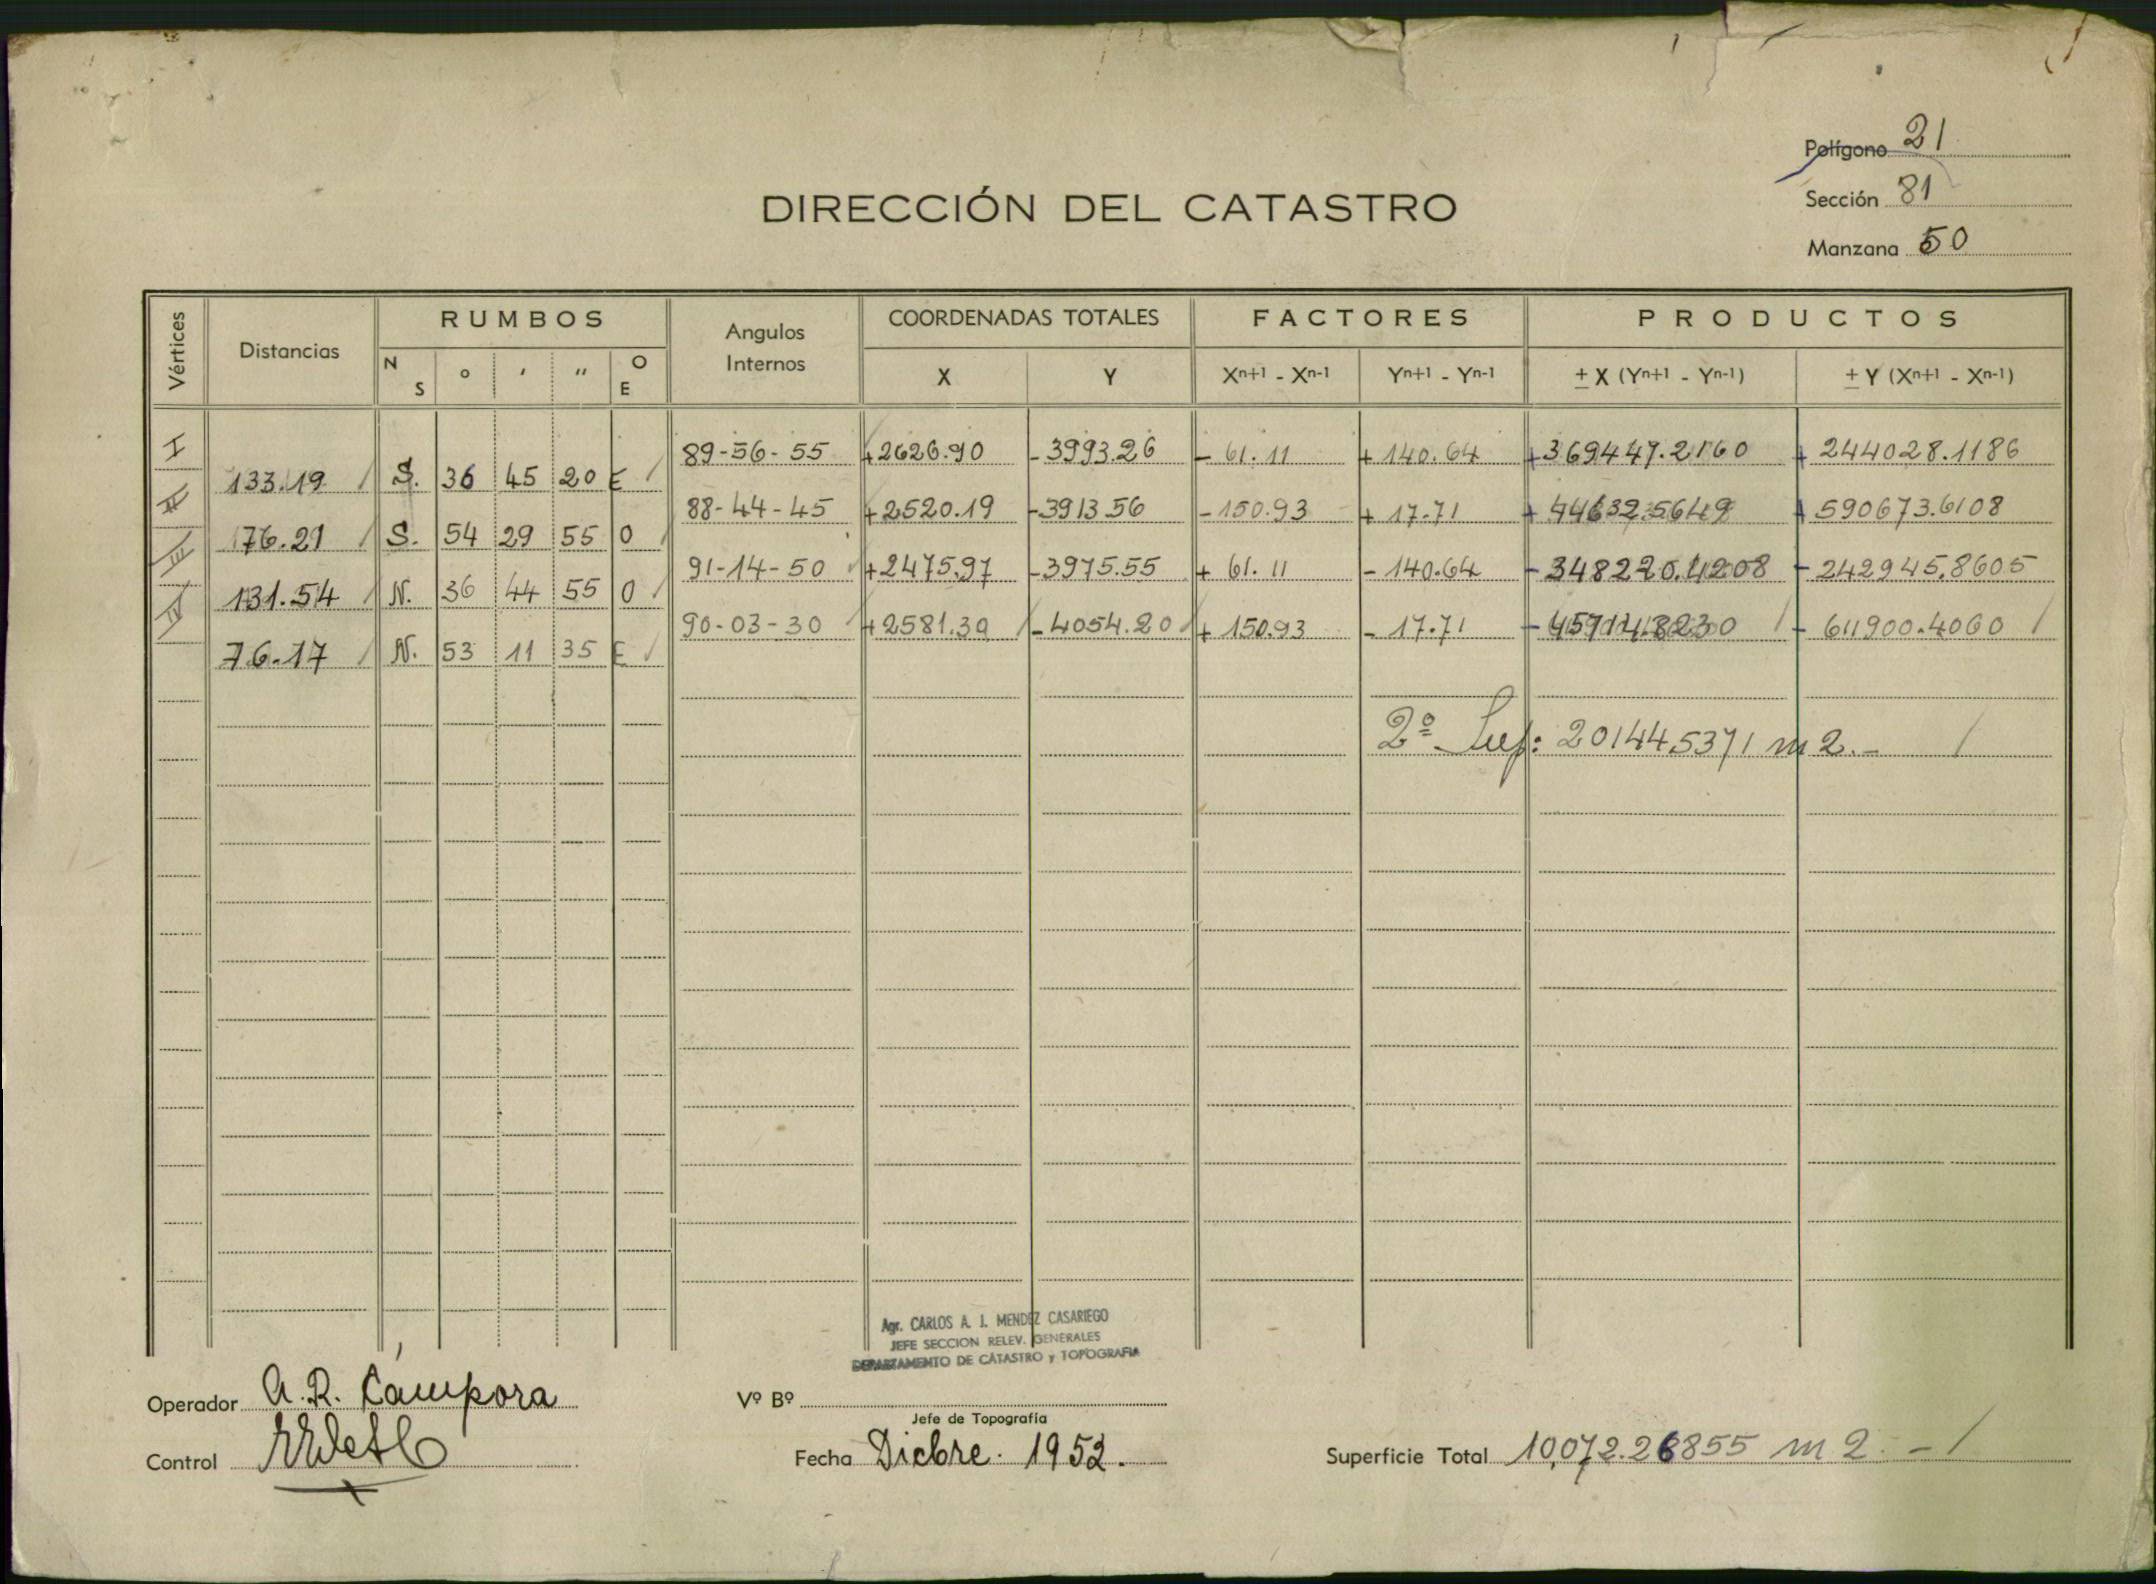 Polígono 21
Sección 81
Manzana 50
DIRECCIÓN DEL CATASTRO
Vértices Distancias RUMBOS Angulos Internos COORDENADAS TOTALES FACTORES PRODUCTOS
N S ° ' " O E X Y Xn+1 - Xn-1 Yn+1 - Yn-1 ± X (Yn+1 - Yn-1) ± Y (Xn+1 - Xn-1)
I 89-56-55 +2626.90 -3993.26 - 61.11 + 140.64 +369447.2160 + 244028.1186
133.19 S. 36 45 20 E
II 88-44-45 +2520.19 -3913.56 - 150.93 + 17.71 + 44632.5649 + 590673.6108
76.21 S. 54 29 55 O
III 91-14-50 +2475.97 -3975.55 + 61.11 - 140.64 - 348220.4208 - 242945.8605
131.54 N. 36 44 55 O
IV 90-03-30 +2581.30 -4054.20 + 150.93 - 17.71 - 45714.8230 - 611900.4060
76.17 N. 53 11 35 E
2º Sup: 20144.5371 m2.-
Agr. CARLOS A. J. MENDEZ CASARIEGO
JEFE SECCION RELEV. GENERALES
DEPARTAMENTO DE CATASTRO y TOPOGRAFIA
Operador A. R. Cámpora
Vº Bº
Jefe de Topografía
Control
Fecha Dicbre. 1952.
Superficie Total 10,072.26855 m2.-